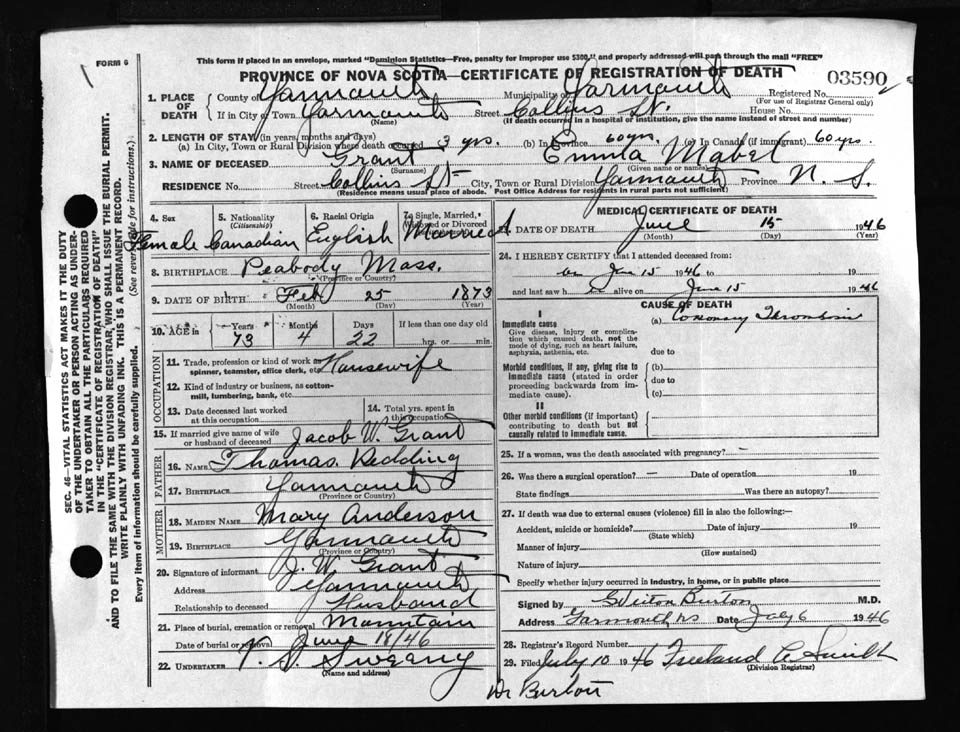 This form if placed in an envelope, marked "Dominion Statistics—Free, penalty for improper use $300," and properly addressed will pass through the mail "FREE"
FORM 6
PROVINCE OF NOVA SCOTIA—CERTIFICATE OF REGISTRATION OF DEATH
03590
1. PLACE OF DEATH County of Yarmouth Municipality of Yarmouth Registered No.
(For use of Registrar General only)
If in City or Town Yarmouth Street Collins St. House No.
(Name) (If death occurred in a hospital of institution, give the name instead of street and number)
2. LENGTH OF STAY (In years, months and days)
(a) In City, Town or Rural Division where death occurred 3 yrs. (b) In Province 60 yrs. (c) In Canada (if immigrant) 60 yrs.
3. NAME OF DECEASED Grant Emma Mabel
(Surname) (Given name or names)
RESIDENCE No. Street Collins St City, Town or Rural Division Yarmouth Province N. S.
(Residence means usual place of abode. Post Office Address for residents in rural parts not sufficient)
4. Sex 5. Nationality (Citizenship) 6. Racial Origin 7. Single, Married, Widowed or Divorced
Female Canadian English Married
8. BIRTHPLACE Peabody Mass.
(Province or Country)
9. DATE OF BIRTH Feb 25 1873
(Month) (Day) (Year)
10. AGE in Years Months Days If less than one day old
73 4 22 hrs. or min.
OCCUPATION
11. Trade, profession or kind of work as spinner, teamster, office clerk, etc. Housewife
12. Kind of industry or business, as cotton-mill, lumbering, bank, etc.
13. Date deceased last worked at this occupation
14. Total yrs. spent in this occupation
15. If married give name of wife or husband of deceased Jacob W. Grant
FATHER
16. NAME Thomas Redding
17. BIRTHPLACE Yarmouth
(Province or Country)
MOTHER
18. MAIDEN NAME Mary Anderson
19. BIRTHPLACE Yarmouth
(Province or Country)
20. Signature of informant J. W. Grant
Address Yarmouth
Relationship to deceased Husband
21. Place of burial, cremation or removal Mountain
Date of burial or removal June 18/46
22. UNDERTAKER V. S. Sweeny
(Name and address)
MEDICAL CERTIFICATE OF DEATH
DATE OF DEATH June 15 1946
(Month) (Day) (Year)
24. I HEREBY CERTIFY that I attended deceased from:
on June 15 1946 to 19
and last saw h er alive on June 15 1946
CAUSE OF DEATH
I
Immediate cause (a) Coronary Thrombosis
Give disease, injury or complication which caused death, not the mode of dying, such as heart failure, asphyxia, asthenia, etc.
due to
Morbid conditions, if any, giving rise to immediate cause (stated in order proceeding backwards from immediate cause).
(b)
due to
(c)
II
Other morbid conditions (if important) contributing to death but not causally related to immediate cause.
25. If a woman, was the death associated with pregnancy? —
26. Was there a surgical operation? — Date of operation 19
State findings Was there an autopsy?
27. If death was due to external causes (violence) fill in also the following:—
Accident, suicide or homicide? Date of injury 19
(State which)
Manner of injury
(How sustained)
Nature of injury
Specify whether injury occurred in industry, in home, or in public place
Signed by G Victor Burton M.D.
Address Yarmouth NS Date July 6 1946
28. Registrar's Record Number
29. Filed July 10 1946 Freeland
(Division Registrar)
Dr Burton
SEC. 46—VITAL STATISTICS ACT MAKES IT THE DUTY
OF THE UNDERTAKER OR PERSON ACTING AS UNDERTAKER TO OBTAIN ALL THE PARTICULARS REQUIRED
IN THE "CERTIFICATE OF REGISTRATION OF DEATH"
AND TO FILE THE SAME WITH THE DIVISION REGISTRAR, WHO SHALL ISSUE THE BURIAL PERMIT.
WRITE PLAINLY WITH UNFADING INK. THIS IS A PERMANENT RECORD.
Every item of information should be carefully supplied. (See reverse side for instructions.)